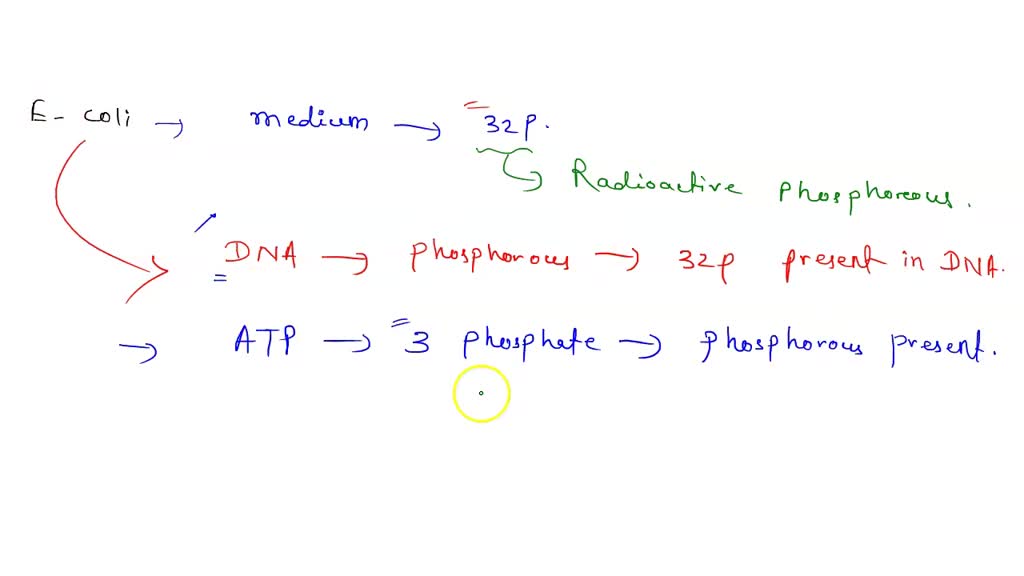 E- coli → medium → 32p.
Radioactive phosphoreous.
DNA → phosphorous → 32p present in DNA.
→ ATP → 3 phosphate → phosphorous present.